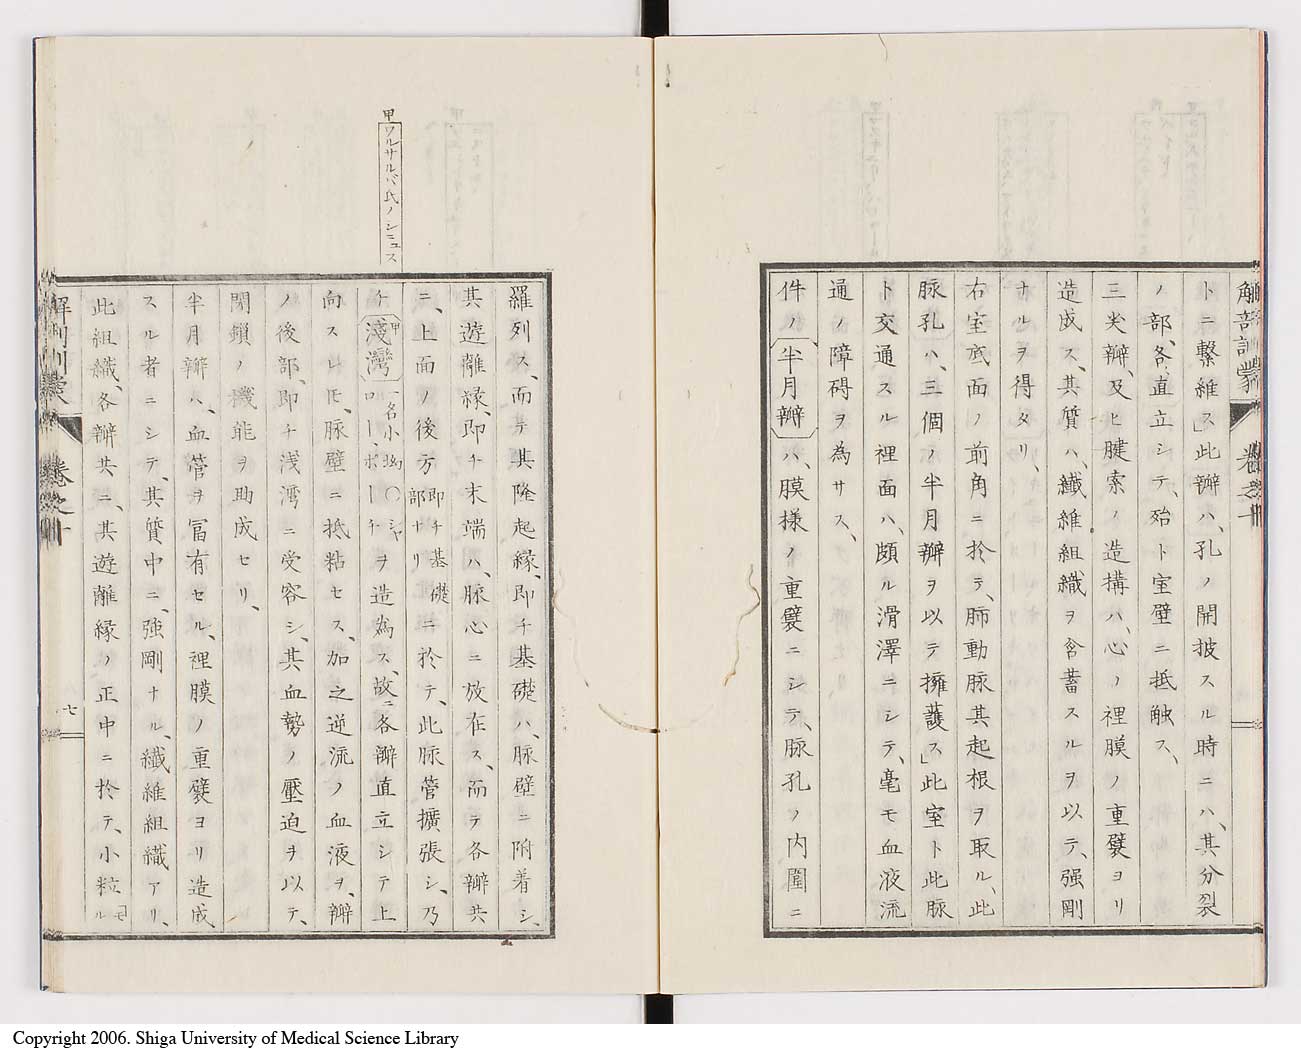 解剖訓蒙 卷之十
トニ繫維ス」此瓣ハ、孔ノ開披スル時ニハ、其分裂
ノ部、各直立シテ、殆ト室壁ニ抵触ス、
三尖瓣、及ヒ腱索ノ造搆ハ、心ノ裡膜ノ重襞ヨリ
造成ス、其質ハ、纖維組織ヲ含蓄スルヲ以テ、强剛
ナルヲ得タリ、
右室底面ノ前角ニ於テ、肺動脉其起根ヲ取ル、此
脉孔ハ、三個ノ半月瓣ヲ以テ擁護ス」此室ト此脉
ト交通スル裡面ハ、頗ル滑澤ニシテ、毫モ血液流
通ノ障碍ヲ為サス、
件ノ半月瓣ハ、膜様ノ重襞ニシテ、脉孔ノ内圍ニ
羅列ス、而テ其隆起緣、即チ基礎ハ、脉壁ニ附着シ、
其遊離緣、即チ末端ハ、脉心ニ放在ス、而テ各瓣共
ニ、上面ノ後方即チ基礎部ナリニ於テ、此脉管擴張シ、乃
甲ワルサルバ氏ノシニュス
チ甲淺灣一名小㘭〇シャロー、ポーチヲ造為ス、故ニ各瓣直立シテ上
向スレ𪜈、脉壁ニ抵粘セス、加之逆流ノ血液ヲ、瓣
ノ後部、即チ浅湾ニ受容シ、其血勢ノ壓迫ヲ以テ、
閉鎖ノ機能ヲ助成セリ、
半月瓣ハ、血管ヲ冨有セル、裡膜ノ重襞ヨリ造成
スル者ニシテ、其質中ニ、強剛ナル、纖維組織アリ、
此組織、各瓣共ニ、其遊離緣ノ正中ニ於テ、小粒ル
解剖訓蒙 卷之十 七
Copyright 2006. Shiga University of Medical Science Library